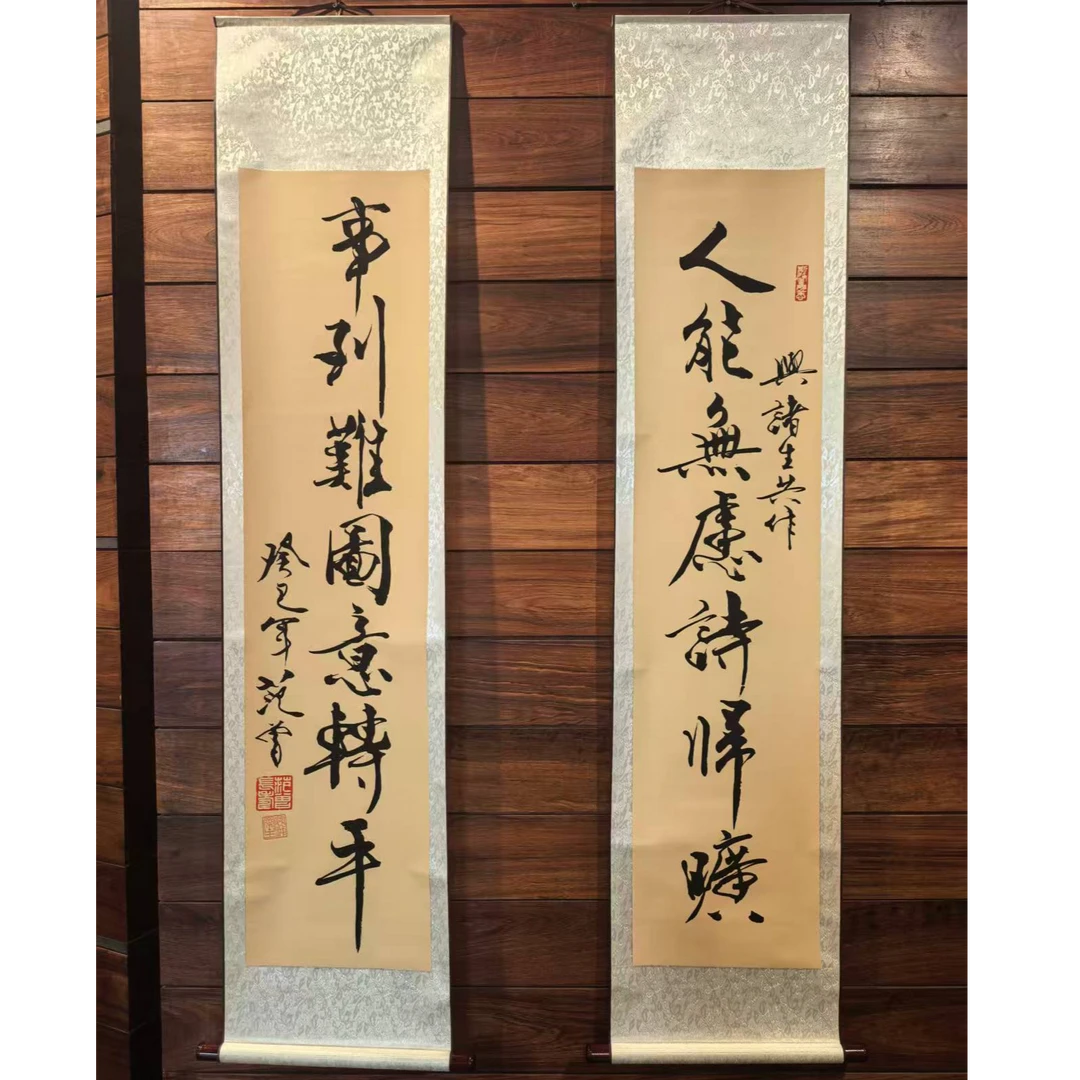 與諸生共作
人能無慮詩帰曠
事到難圖意轉平
癸巳年范曾